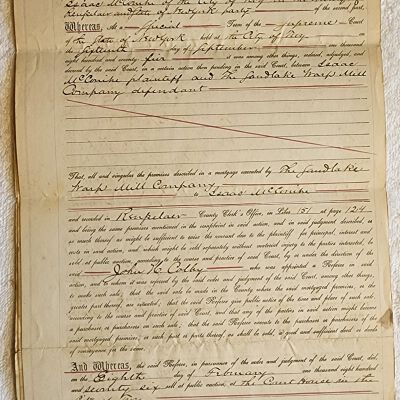 Isaac McConihe of the City of Troy in the
Rensselaer and State of New York party of the second part,
Whereas, At a Special Term of the Supreme Court
of the State of New York held at the City of Troy
on the fifteenth day of September one thousand
eight hundred and seventy five it was among other things, ordered, adjudged, and
decreed by the said Court, in a certain action then pending in the said Court, between Isaac
McConihe plaintiff and The Sandlake Warp Mill
Company defendant
That, all and singular the premises described in a mortgage executed by The Sandlake
Warp Mill Company
to Isaac McConihe
and recorded in Rensselaer County Clerk's Office, in Liber 151 at page 124
and being the same premises mentioned in the complaint in said action, and in said judgment described, or
so much thereof as might be sufficient to raise the amount due to the plaintiff for principal, interest and
costs in said action, and which might be sold separately without material injury to the parties interested, be
sold at public auction according to the course and practice of said Court, by or under the direction of the
said John H. Colby who was appointed a Referee in said
action, and to whom it was referred by the said order and judgment of the said Court, among other things,
to make such sale; that the said sale be made in the County where the said mortgaged premises, or the
greater part thereof, are situated; that the said Referee give public notice of the time and place of such sale,
according to the course and practice of said Court, and that any of the parties in said action might become
a purchaser, or purchasers on such sale; that the said Referee execute to the purchaser or purchasers of the
said mortgaged premises, or such part or parts thereof as shall be sold, a good and sufficient deed or deeds
of conveyance for the same.
And Whereas, the said Referee, in pursuance of the order and judgment of the said Court, did,
on the Eighth day of February one thousand eight hundred
and seventy six sell at public auction, at The Court House in the